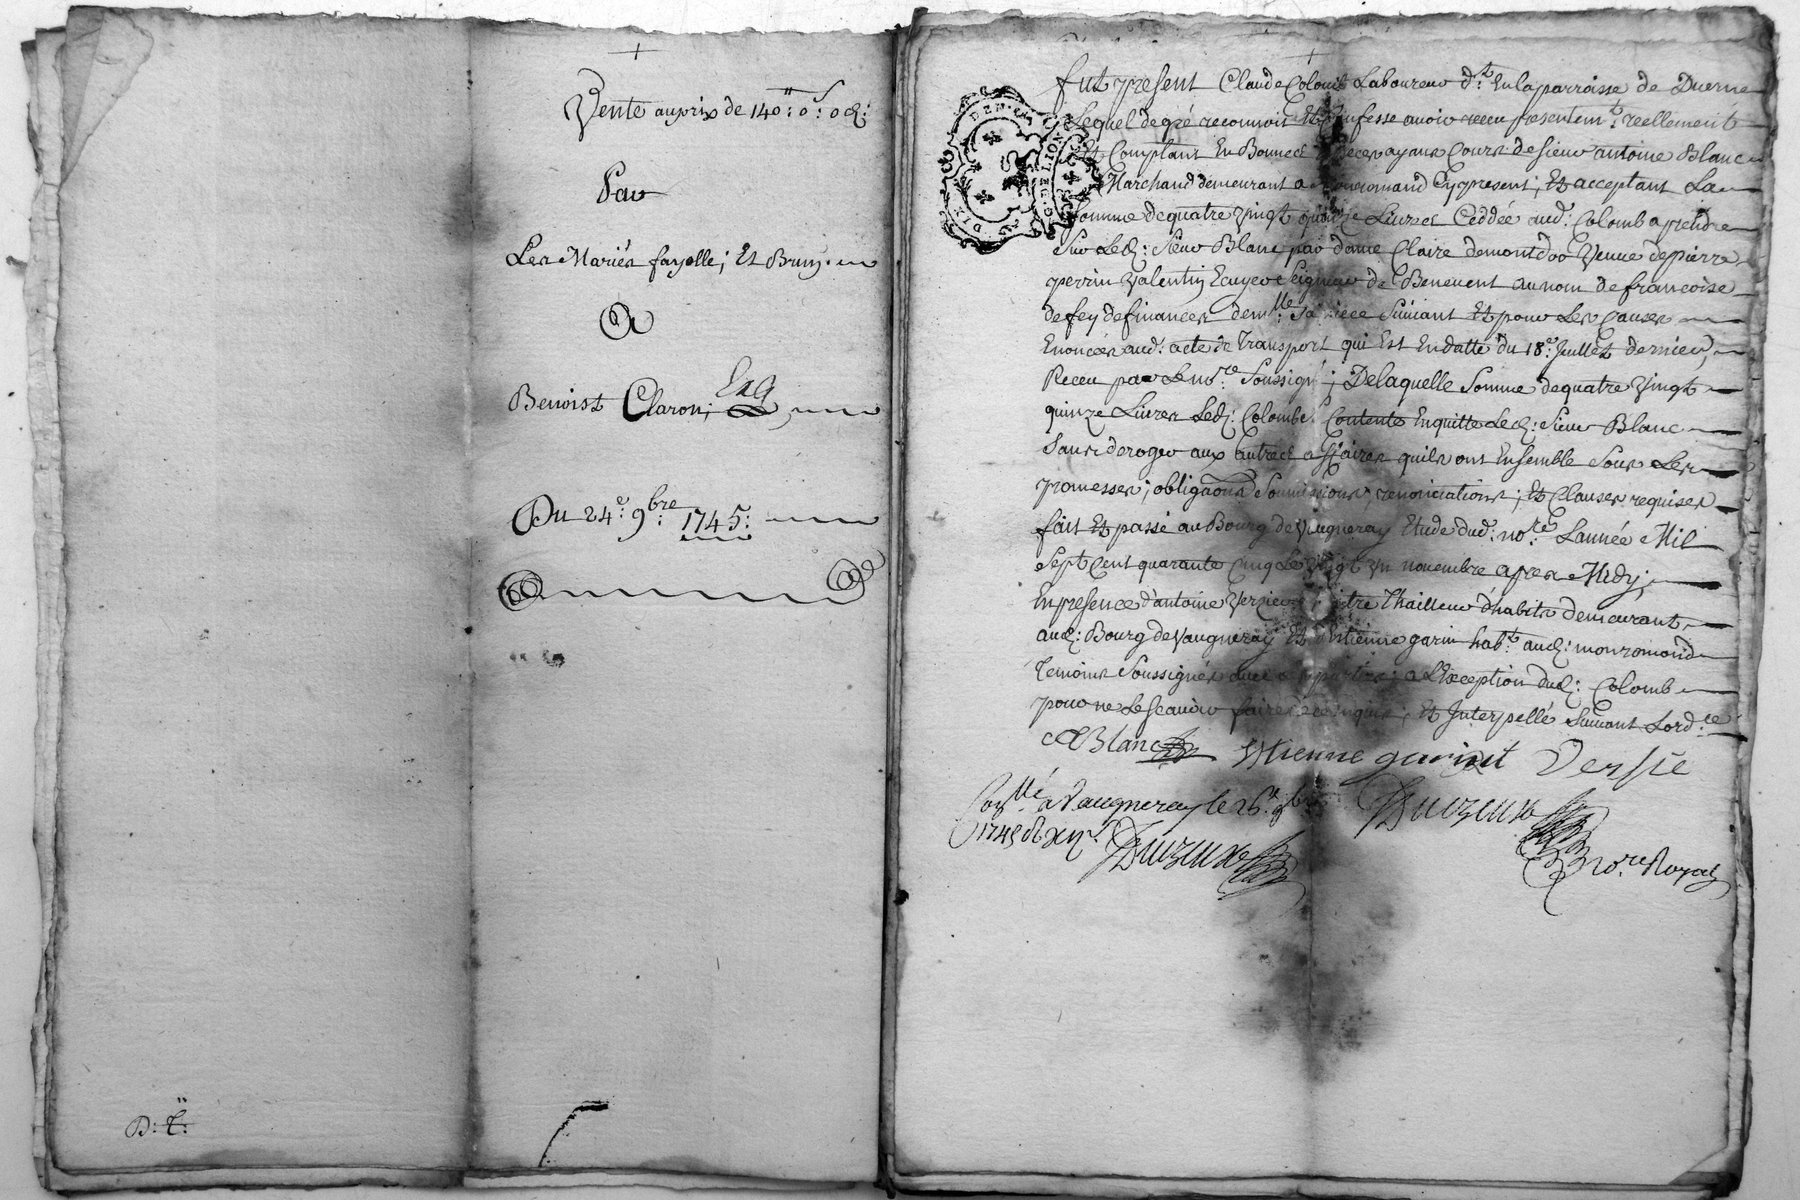 Vente auprix de 140ʰ: 0ˢ: 0 d:
Par
Les Mariés fayolle; Et Bruny
A
Benoist Claron;
Du 24ᵉ: 9bre: 1745:
D: t:
fut present Claude Colomb Laboureur dt: En la parroisse de Duerne
Lequel de gré reconnoit Et Confesse avoir receu presentemt: reellement
Et Comptant En Bonnes Especes ayans Cours de sieur antoine Blanc
Marchand demeurant a monromand Cy present; Et acceptant La
Somme de quatre Vingt quinze Livres Ceddée aud: Colomb a prendre
Sur Led: Sieur Blanc par dame Claire demontdor Veuve de pierre
perrin Valentin Ecuyer Seigneur de Benevent au nom de francoise
de fey definances demlle: Sa niece Suivant Et pour Les Causes
Enoncées aud: acte de Transport qui Est En datte du 18ᵉ: Juillet dernier,
Receu par Le nore Soussigné; De laquelle Somme de quatre Vingt
quinze Livres Led: Colomb Contente Enquitte Led: Sieur Blanc
Sans deroger aux autres affaires quils ont Ensemble Sous Les
promesses; obligaons Soumissions, renonciations; Et Clauses requises
fait Et passé au Bourg de Vaugneray Etude dud: nore: L'année Mil
Sept Cent quarante Cinq Le Vingt Un novembre apres Midy;
En presence d'antoine Verzier maitre Thailleur d'habits demeurant
aud: Bourg de Vaugneray Et Estienne garin habt: aud: monromand
Temoins Soussignés avec les parties; a L'Exception dud: Colomb
pour ne Le Scavoir faire de ce Enquis; Et Interpellé Suivant Lordce:
A Blanc Estienne garin Versie
Conllé a Vaugneray le 26ᵉ 9bre
1745
Nore. Royal